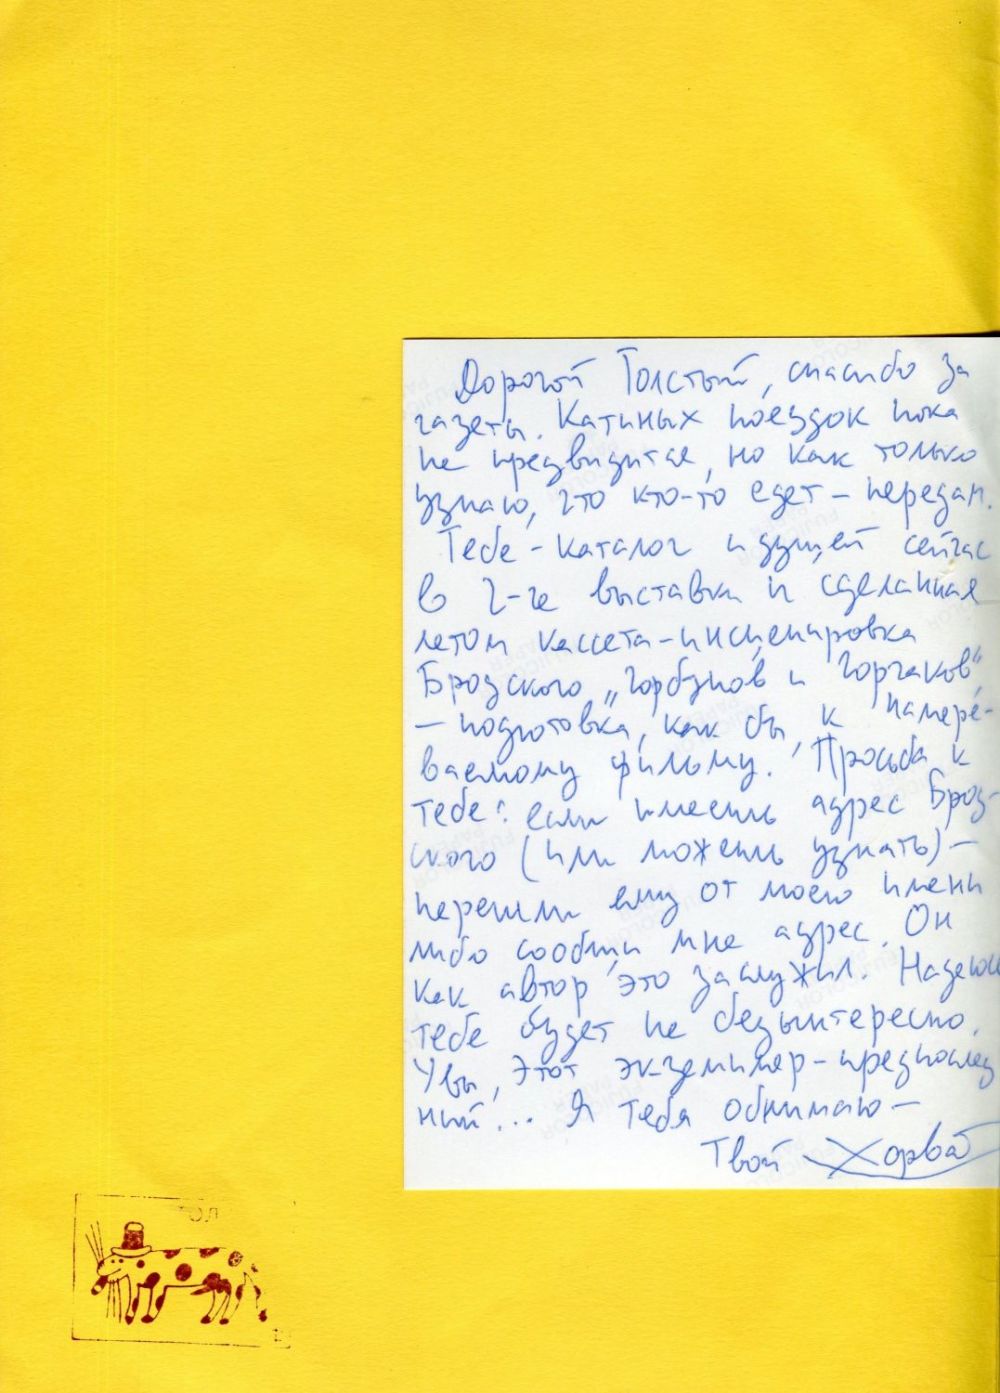 Дорогой Толстый, спасибо за
газеты. Катиных поездок пока
не предвидится, но как только
узнаю, что кто-то едет – передам.
Тебе – каталог идущей сейчас
в выставки и сделанная
летом кассета-инсценировка
Бродского „Горбунов и Горчаков"
– подготовка, как бы, к намере-
ваемому фильму. Просьба к
тебе: если имеешь адрес Брод-
ского (или можешь узнать) –
перешли ему от моего имени
либо сообщи мне адрес. Он
как автор это заслужил. Надеюсь
тебе будет не безынтересно.
Увы, этот экземпляр – предпослед
ний... Я тебя обнимаю –
Твой Хорват